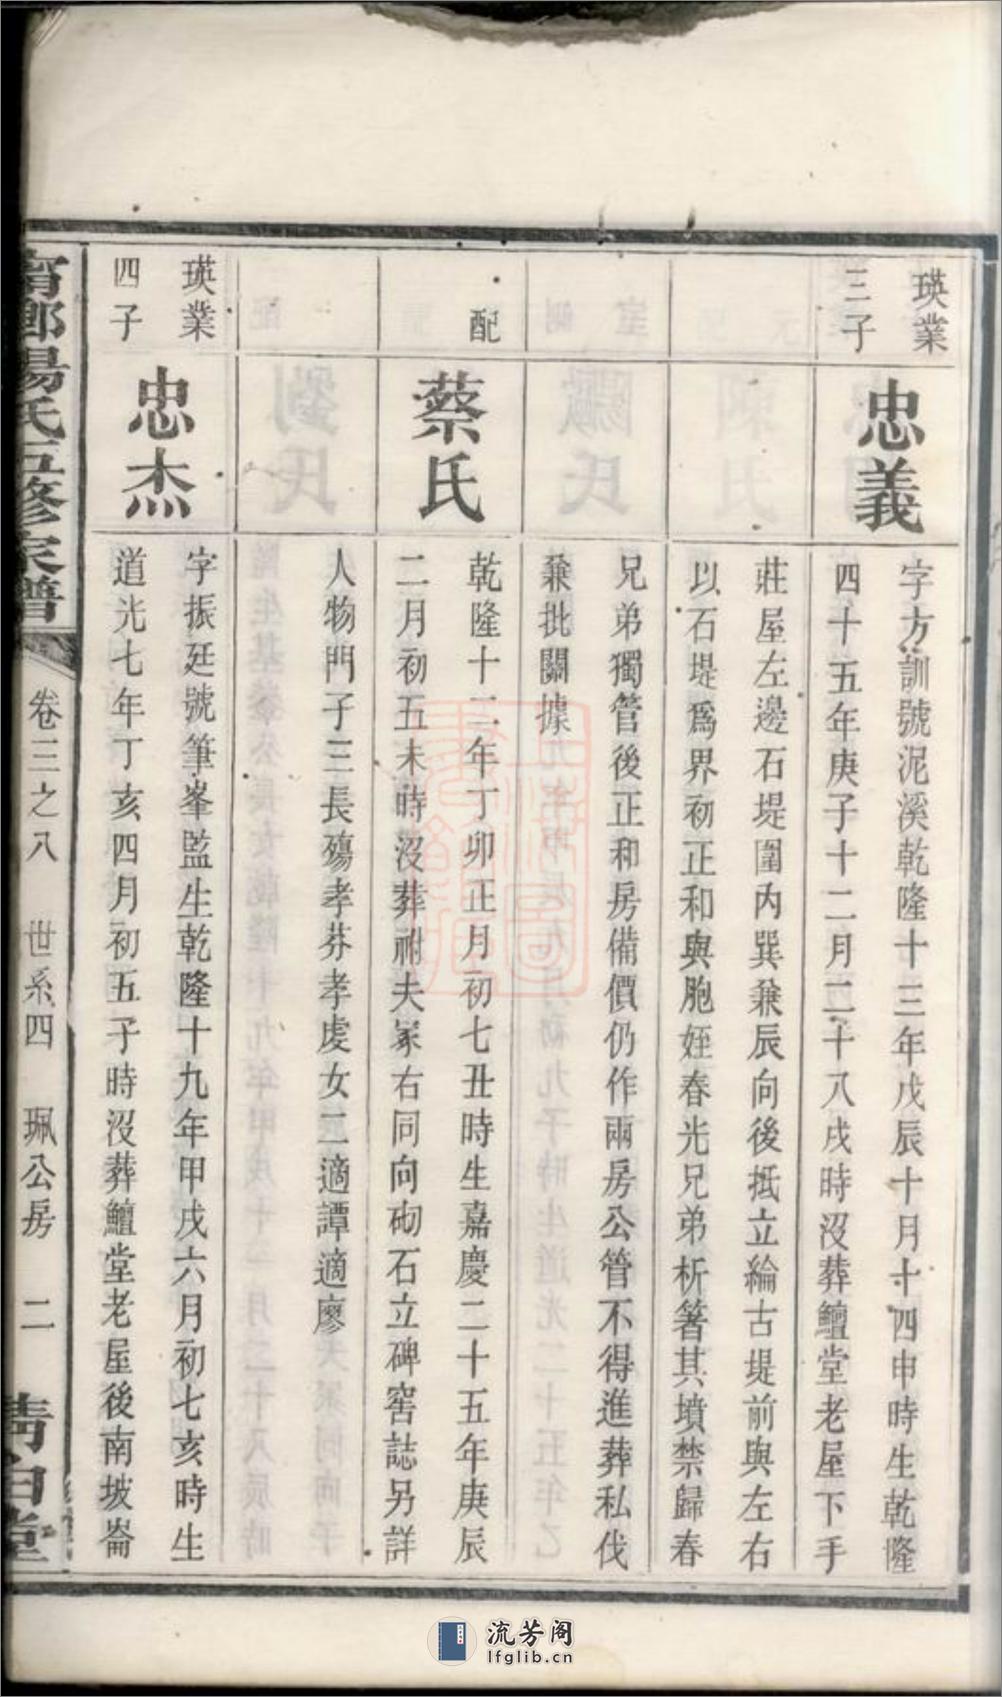 瑛業
三子
忠義
字方訓號泥溪乾隆十三年戊辰十月十四申時生乾隆
四十五年庚子十二月二十八戌時沒葬鱣堂老屋下手
莊屋左邊石堤圍內巽兼辰向後抵立綸古堤前與左右
以石堤爲界初正和與胞姪春光兄弟析箸其墳禁歸春
兄弟獨管後正和房備價仍作兩房公管不得進葬私伐
兼批關據
配
蔡氏
乾隆十二年丁卯正月初七丑時生嘉慶二十五年庚辰
二月初五未時沒葬祔夫冢右同向砌石立碑窖誌另詳
人物門子三長殤孝芬孝虔女二適譚適廖
瑛業
四子
忠杰
字振廷號筆峯監生乾隆十九年甲戌六月初七亥時生
道光七年丁亥四月初五子時沒葬鱣堂老屋後南坡崙
甯鄉湯氏五修家譜
卷三之八 世系四 珮公房 二
清白堂
流芳阁
lfglib.cn